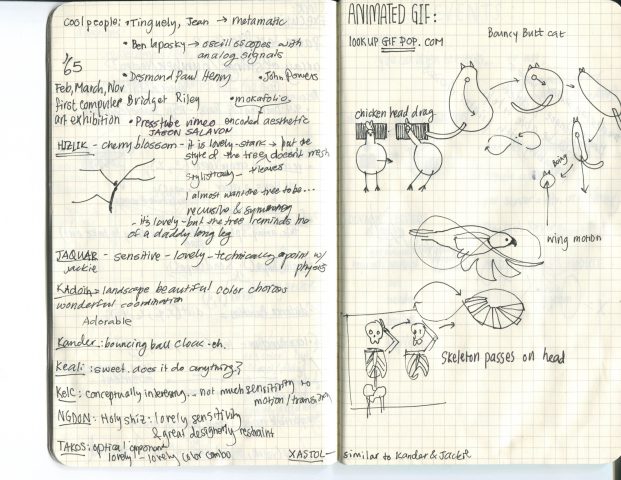 cool people: • Tinguely, Jean → metamatic
• Ben laposky → oscilloscopes with
analog signals
'65
• Desmond Paul Henry
• John Powers
Feb, March, Nov
first computer
art exhibition
Bridget Riley
• mokafolio
• Presstube vimeo
encoded aesthetic
JASON SALAVON
HIZLIK - cherry blossom - it is lovely - stark - but the
style of the tree doesn't mesh
stylistically + leaves
I almost want the tree to be...
recursive & symmetrical
- it's lovely - but the tree reminds me
of a daddy long leg
JAQUAR - sensitive - lovely - technically a point w/
jackie
physics
KAdoin = landscape beautiful color choices
wonderful coordination
Adorable
Kander: bouncing ball cloac - eh.
Keali: sweet. does it do anything?
Kelc: conceptually interesting... not much sensitivity to
motion/transition
NGDON: Holy shiz: lovely sensitivity
& great designerly restraint
TAKOS: optical
lovely - lovely color combo
XASTOL - similar to Kander & Jackie
ANIMATED GIF:
lOOK UP GIF POP. COM
Bouncy Butt cat
chicken head drag
Bong
wing motion
Skeleton passes on head